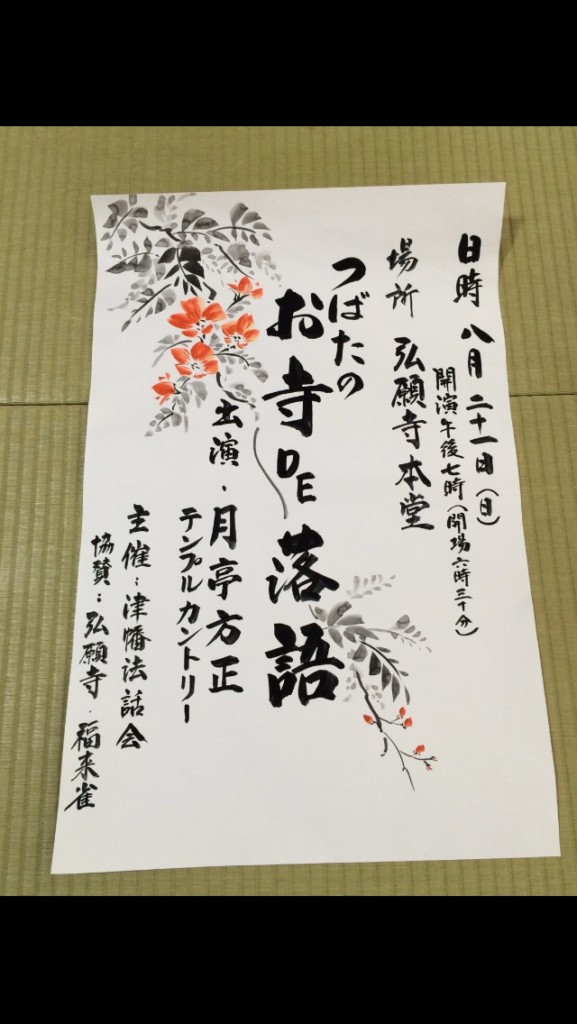 日時 八月二十一日(日)
開演午後七時(開場六時三十分)
場所 弘願寺本堂
つばたの
お寺DE落語
出演、月亭方正
テンプルカントリー
主催:津幡法話会
協賛:弘願寺・福来雀